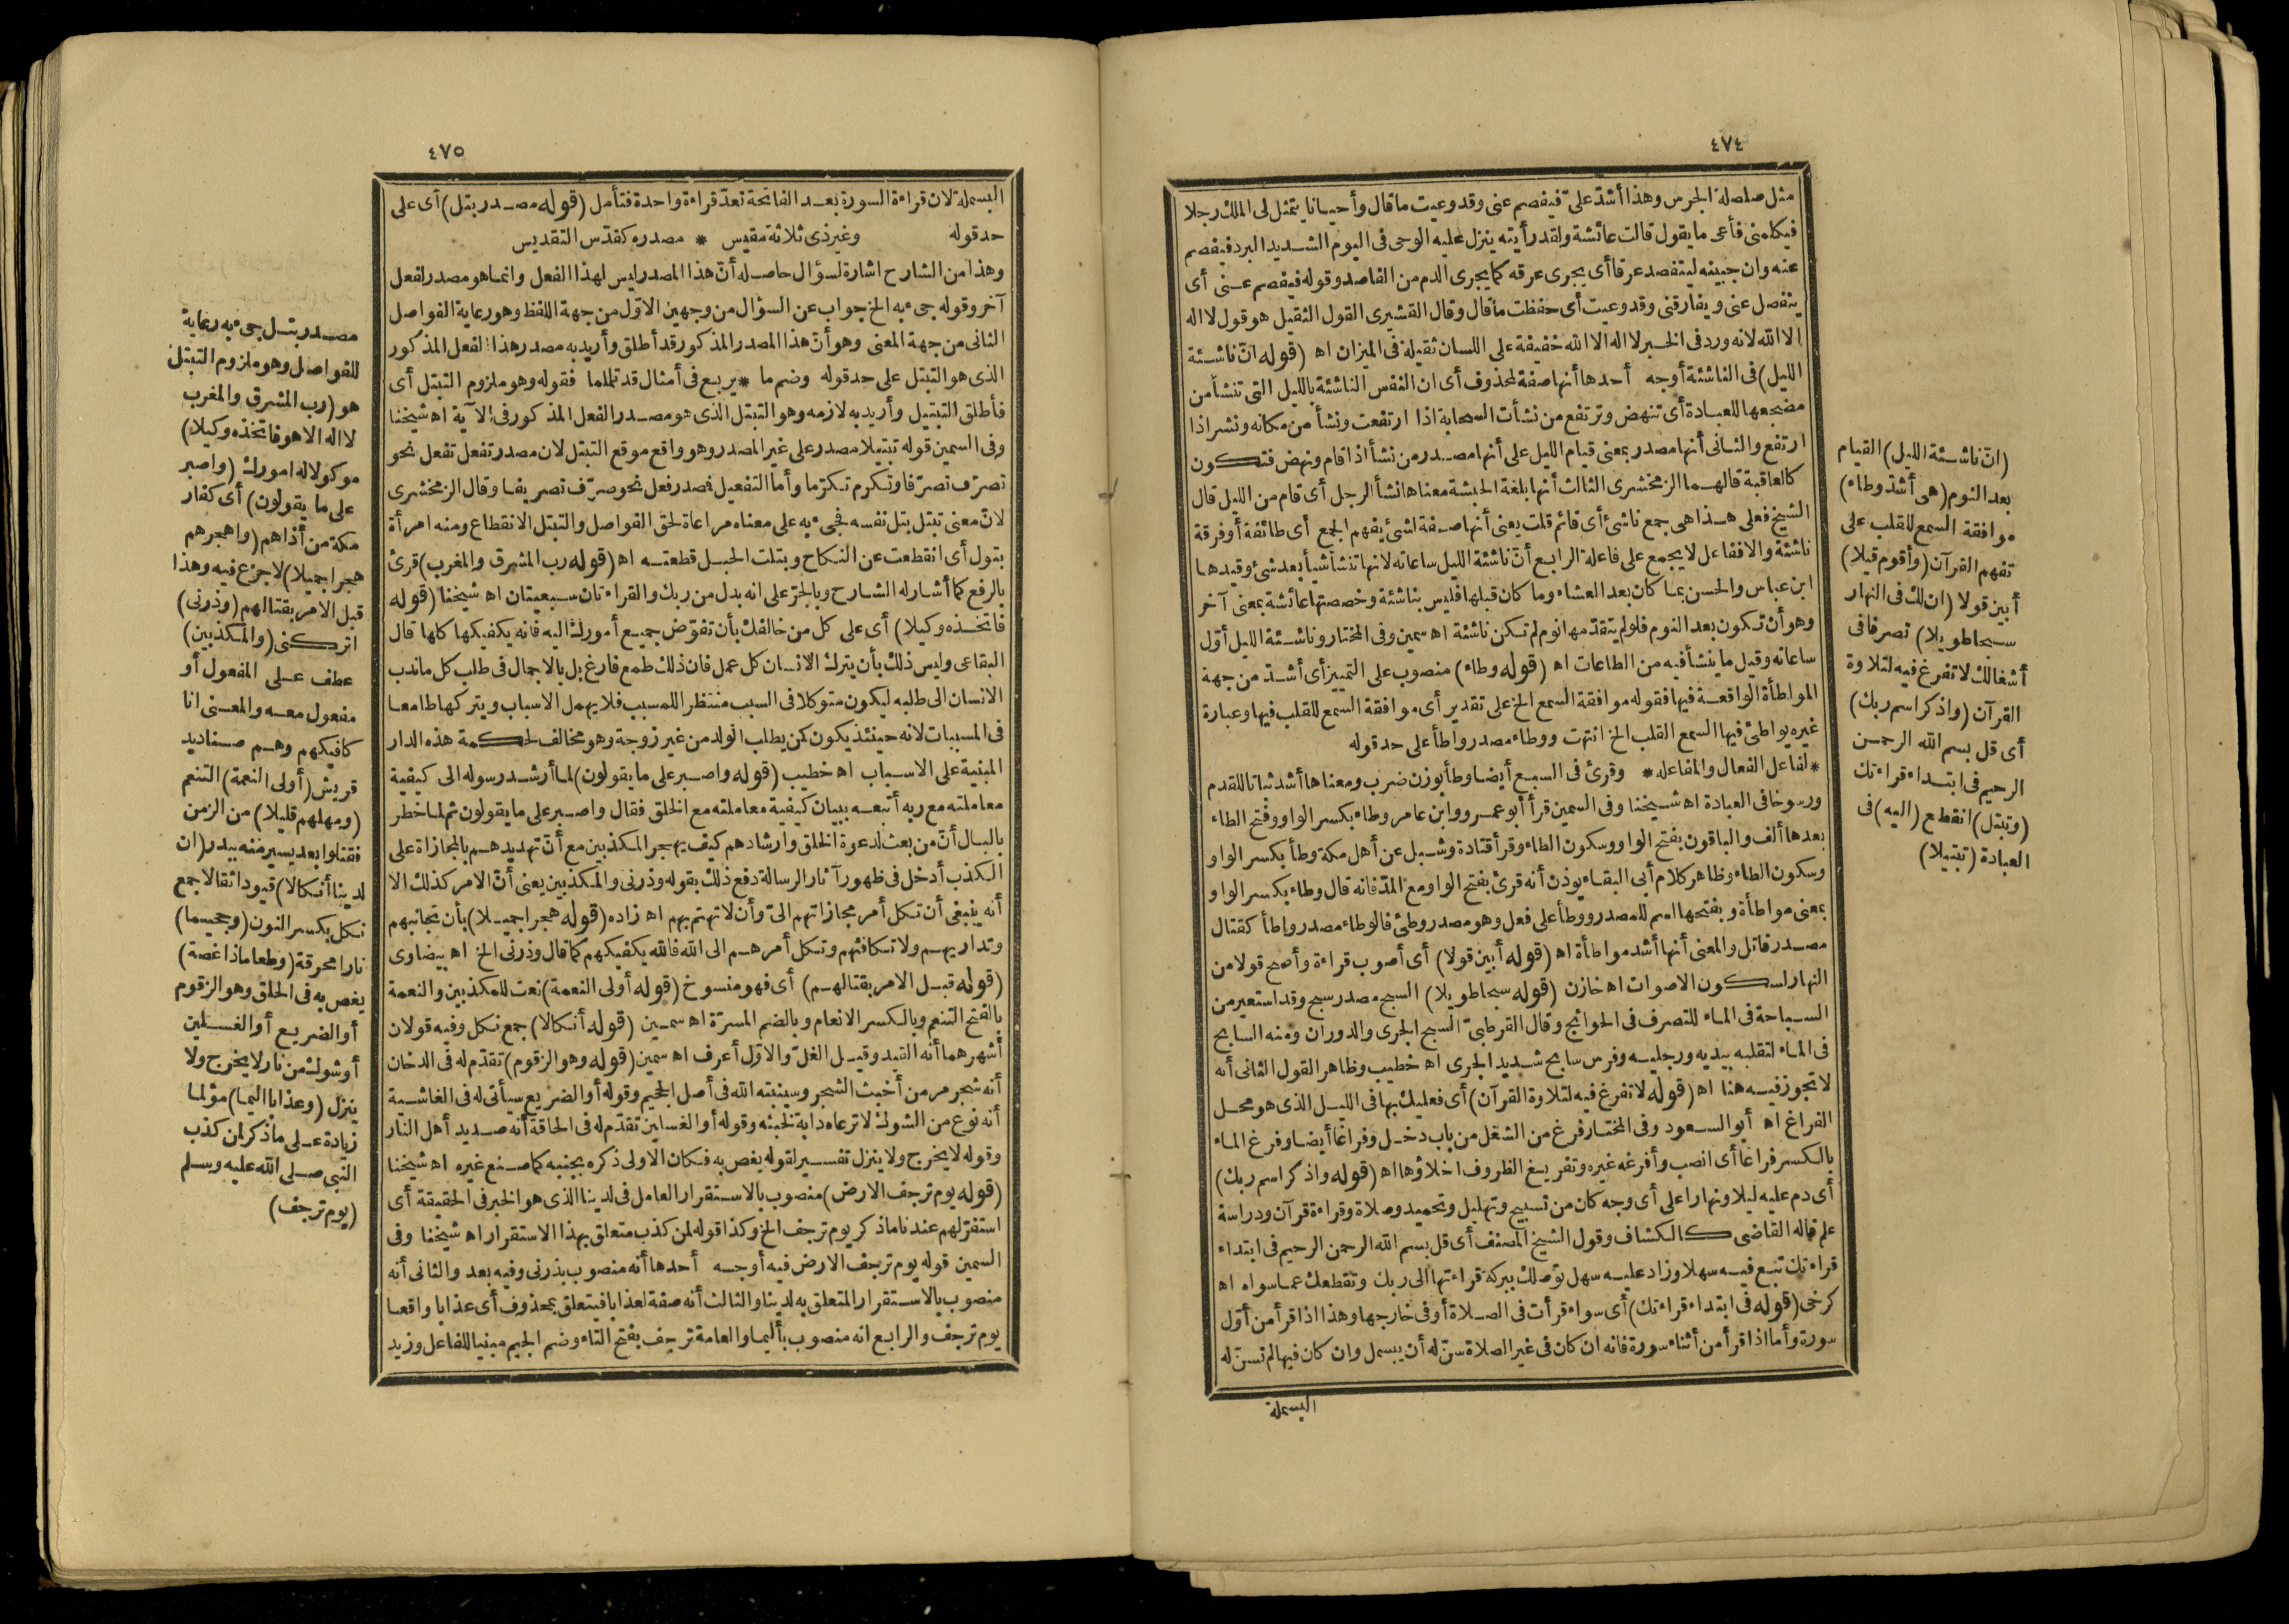 ٤٧٤
مثل صلصلة الجرس وهذا أشدّ علىّ فيفصم عنى وقد وعيت ما قال وأحيانا يتمثل لى الملك رجلا
فيكلمنى فأعى ما يقول قالت عائشة ولقد رأيته ينزل عليه الوحى فى اليوم الشديد البرد فيفصم
عنه وان جبينه ليتفصد عرقا أى يجرى عرقه كما يجرى الدم من الفاصد وقوله فيفصم عنى أى
ينفصل عنى ويفارقنى وقد وعيت أى حفظت ما قال وقال القشيرى القول الثقيل هو قول لا اله
الا الله لانه ورد فى الخبر لا اله الا الله خفيفة على اللسان ثقيلة فى الميزان اه (قوله انّ ناشئة
الليل) فى الناشئة أوجه أحدها أنها صفة لمحذوف أى ان النفس الناشئة بالليل التى تنشأ من
مضجعها للعبادة أى تنهض وترتفع من نشأت السحابة اذا ارتفعت ونشأ من مكانه ونشز اذا
ارتفع والثانى أنها مصدر بمعنى قيام الليل على أنها مصدر من نشأ اذا قام ونهض فتكون
كالعاقبة قالهما الزمخشرى الثالث أنها بلغة الحبشة معناها نشأ الرجل أى قام من الليل قال
الشيخ فعلى هذا هى جمع ناشئ أى قائم قلت يعنى أنها صفة لشئ يفهم الجمع أى طائفة أو فرقة
ناشئة والا ففاعل لا يجمع على فاعلة الرابع أنّ ناشئة الليل ساعاته لانها تنشأ شيأ بعد شئ وقيدها
ابن عباس والحسن بما كان بعد العشاء وما كان قبلها فليس بناشئة وخصصتها عائشة بمعنى آخر
وهو أن تكون بعد النوم فلو لم يتقدّمها نوم لم تكن ناشئة اه سمين وفى المختار وناشئة الليل أوّل
ساعاته وقيل ما ينشأ فيه من الطاعات اه (قوله وطاء) منصوب على التمييز أى أشدّ من جهة
المواطأة الواقعة فيها فقوله موافقة السمع الخ على تقدير أى موافقة السمع للقلب فيها وعبارة
غيره يواطئ فيها السمع القلب الخ انتهت ووطاء مصدر واطأ على حد قوله
* لفاعل الفعال والمفاعله * وقرئ فى السبع أيضا وطأ بوزن ضرب ومعناها أشد ثباتا للقدم
ورسوخا فى العبادة اه شيخنا وفى السمين قرأ أبو عمرو وابن عامر وطاء بكسر الواو وفتح الطاء
بعدها ألف والباقون بفتح الواو وسكون الطاء وقرأ قتادة وشبل عن أهل مكة وطأ بكسر الواو
وسكون الطاء وظاهر كلام أبى البقاء يؤذن أنه قرئ بفتح الواو مع المدّ فانه قال وطاء بكسر الواو
بمعنى مواطأة وبفتحها اسم للمصدر ووطأ على فعل وهو مصدر وطئ فالوطاء مصدر واطأ كقتال
مصدر قاتل والمعنى أنها أشد مواطأة اه (قوله أبين قولا) أى أصوب قراءة وأصح قولا من
النهار لسكون الاصوات اه خازن (قوله سبحا طويلا) السبح مصدر سبح وقد استعير من
السباحة فى الماء للتصرف فى الحوائج وقال القرطبىّ السبح الجرى والدوران ومنه السابح
فى الماء لتقلبه بيديه ورجليه وفرس سابح شديد الجرى اه خطيب وظاهر القول الثانى أنه
لا تجوز فيه هنا اه (قوله لا تفرغ فيه لتلاوة القرآن) أى فعليك بها فى الليل الذى هو محل
الفراغ اه أبو السعود وفى المختار فرغ من الشغل من باب دخل وفراغا أيضا وفرغ الماء
بالكسر فراغا أى انصب وأفرغه غيره وتفريغ الظروف اخلاؤها اه (قوله واذكر اسم ربك)
أى دم عليه ليلا ونهارا على أى وجه كان من تسبيح وتهليل وتحميد وصلاة وقراءة قرآن ودراسة
علم قاله القاضى كالكشاف وقول الشيخ المصنف أى قل بسم الله الرحمن الرحيم فى ابتداء
قراءتك تبع فيه سهلا وزاد عليه سهل توصلك ببركة قراءتها الى ربك وتقطعك عما سواه اه
كرخى (قوله فى ابتداء قراءتك) أى سواء قرأت فى الصلاة أو فى خارجها وهذا اذا قرأ من أوّل
سورة وأما اذا قرأ من أثناء سورة فانه ان كان فى غير الصلاة سنّ له أن يبسمل وان كان فيها لم تسنّ له
البسملة
(انّ ناشئة الليل) القيام
بعد النوم (هى أشدّ وطاء)
موافقة السمع للقلب على
تفهم القرآن (وأقوم قيلا)
أبين قولا (ان لك فى النهار
سبحا طويلا) تصرفا فى
أشغالك لا تفرغ فيه لتلاوة
القرآن (واذكر اسم ربك)
أى قل بسم الله الرحمن
الرحيم فى ابتداء قراءتك
(وتبتل) انقطع (اليه) فى
العبادة (تبتيلا)
٤٧٥
البسملة لان قراءة السورة بعد الفاتحة تعدّ قراءة واحدة فتأمل (قوله مصدر بتل) أى على
حد قوله وغير ذى ثلاثة مقيس * مصدره كقدّس التقديس
وهذا من الشارح اشارة لسؤال حاصله أنّ هذا المصدر ليس لهذا الفعل وانما هو مصدر لفعل
آخر وقوله جىء به الخ جواب عن السؤال من وجهين الاوّل من جهة اللفظ وهو رعاية الفواصل
الثانى من جهة المعنى وهو أنّ هذا المصدر المذكور قد أطلق وأريد به مصدر هذا الفعل المذكور
الذى هو التبتل على حد قوله وضم ما * يربع فى أمثال قد تلملما فقوله وهو ملزوم التبتل أى
فأطلق التبتيل وأريد به لازمه وهو التبتل الذى هو مصدر الفعل المذكور فى الآية اه شيخنا
وفى السمين قوله تبتيلا مصدر على غير المصدر وهو واقع موقع التبتل لان مصدر تفعل تفعل نحو
تصرّف تصرّفا وتكرم تكرّما وأما التفعيل فصدر فعل نحو صرّف تصريفا وقال الزمخشرى
لانّ معنى تبتل بتل نفسه فجىء به على معناه مراعاة لحق الفواصل والتبتل الانقطاع ومنه امرأة
بتول أى انقطعت عن النكاح وبتلت الحبل قطعته اه (قوله رب المشرق والمغرب) قرئ
بالرفع كما أشار له الشارح وبالجرّ على انه بدل من ربك والقراءتان سبعيتان اه شيخنا (قوله
فاتخذه وكيلا) أى على كل من خالفك بأن تفوّض جميع أمورك اليه فانه يكفيكها كلها قال
البقاعى وليس ذلك بأن يترك الانسان كل عمل فان ذلك طمع فارغ بل بالاجمال فى طلب كل ما ندب
الانسان الى طلبه ليكون متوكلا فى السبب منتظرا للمسبب فلا يهمل الاسباب ويتركها طامعا
فى المسببات لانه حينئذ يكون كمن يطلب الولد من غير زوجة وهو مخالف لحكمة هذه الدار
المبنية على الاسباب اه خطيب (قوله واصبر على ما يقولون) لما أرشد رسوله الى كيفية
معاملته مع ربه أتبعه ببيان كيفية معاملته مع الخلق فقال واصبر على ما يقولون ثم لما خطر
بالبال أنّ من بعث لدعوة الخلق وارشادهم كيف يهجر المكذبين مع أنّ تهديدهم بالمجازاة على
الكذب أدخل فى ظهور آثار الرسالة دفع ذلك بقوله وذرنى والمكذبين يعنى أنّ الامر كذلك الا
أنه ينبغى أن تكل أمر مجازاتهم الىّ وأن لا تهتم بهم اه زاده (قوله هجرا جميلا) بأن تجانبهم
وتداريهم ولا تكافئهم وتكل أمرهم الى الله فالله يكفيكهم كما قال وذرنى الخ اه بيضاوى
(قوله قبل الامر بقتالهم) أى فهو منسوخ (قوله أولى النعمة) نعت للمكذبين والنعمة
بالفتح التنعم وبالكسر الانعام وبالضم المسرّة اه سمين (قوله أنكالا) جمع نكل وفيه قولان
أشهرهما أنه القيد وقيل الغلّ والاوّل أعرف اه سمين (قوله وهو الزقوم) تقدّم له فى الدخان
أنه شجر مر من أخبث الشجر وسينبته الله فى أصل الجحيم وقوله أو الضريع سيأتى له فى الغاشية
أنه نوع من الشوك لا ترعاه دابة لخبثه وقوله أو الغسلين تقدّم له فى الحاقة أنه صديد أهل النار
وقوله لا يخرج ولا ينزل تفسير لقوله يغص به فكان الاولى ذكره بجنبه كما صنع غيره اه شيخنا
(قوله يوم ترجف الارض) منصوب بالاستقرار العامل فى لدينا الذى هو الخبر فى الحقيقة أى
استقرّ لهم عندنا ما ذكر يوم ترجف الخ وكذا قوله لمن كذب متعلق بهذا الاستقرار اه شيخنا وفى
السمين قوله يوم ترجف الارض فيه أوجه أحدها أنه منصوب بذرنى وفيه بعد والثانى أنه
منصوب بالاستقرار المتعلق به لدينا والثالث أنه صفة لعذابا فيتعلق بمحذوف أى عذابا واقعا
يوم ترجف والرابع انه منصوب بأليما والعامة ترجف بفتح التاء وضم الجيم مبنيا للفاعل وزيد
مصدر بتل جىء به رعاية
للفواصل وهو ملزوم التبتل
هو (رب المشرق والمغرب
لا اله الا هو فاتخذه وكيلا)
موكولا له امورك (واصبر
على ما يقولون) أى كفار
مكة من أذاهم (واهجرهم
هجرا جميلا) لا جزع فيه وهذا
قبل الامر بقتالهم (وذرنى)
اتركنى (والمكذبين)
عطف على المفعول أو
مفعول معه والمعنى انا
كافيكهم وهم صناديد
قريش (أولى النعمة) التنعم
(ومهلهم قليلا) من الزمن
فقتلوا بعد يسير منه ببدر (ان
لدينا أنكالا) قيودا ثقالا جمع
نكل بكسر النون (وجحيما)
نارا محرقة (وطعاما ذا غصة)
يغص به فى الحلق وهو الزقوم
أو الضريع أو الغسلين
أو شوك من نار لا يخرج ولا
ينزل (وعذابا أليما) مؤلما
زيادة على ما ذكر لمن كذب
النبى صلى الله عليه وسلم
(يوم ترجف)